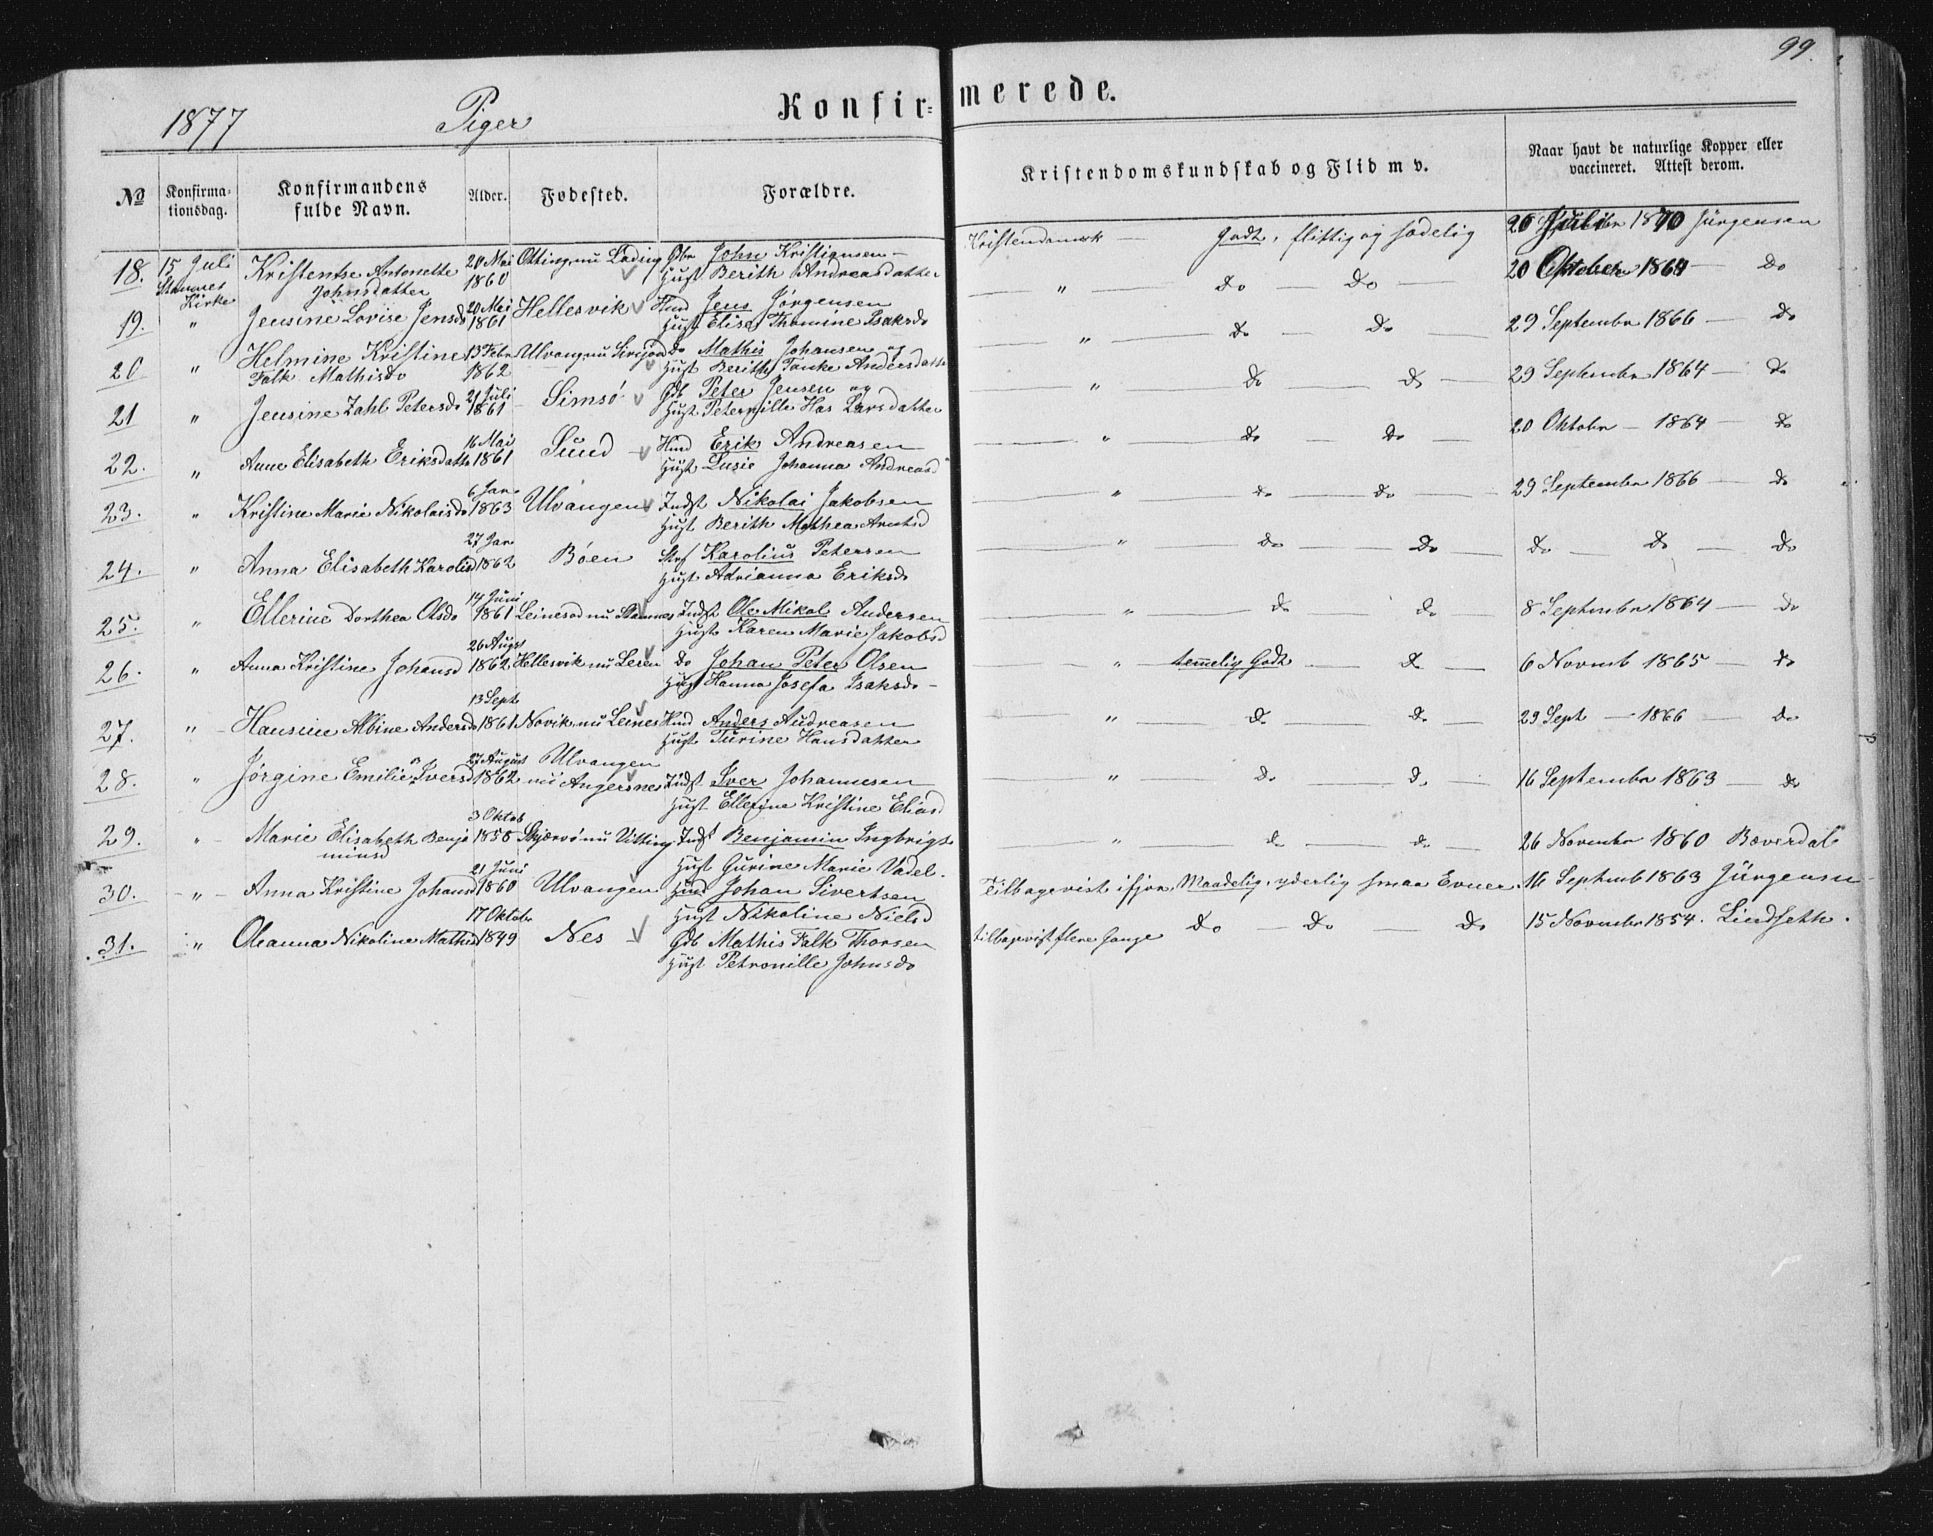 99.
1877 Piger Konfir= merede.
№ Konfirma-tionsdag. Konfirmandens fulde Navn. Alder. Fødested. Forældre. Kristendomskundskab og Flid m v. Naar havt de naturlige Kopper eller vaccineret. Attest derom.
18. 15 Juli Kristentse Antonette 28 Mai Otting nu Lading Gbr John Kristiansen Kristendomsk — Godt, flittig og sædelig 26 Juli 1870 Jürgensen
Stamnes Kirke Johnsdatter 1860 Hust Berith Andreasdatter
19. " Jensine Lovise Jensd 20 Mai 1861 Hellesvik Hmd Jens Jørgensen " Do — Do — 20 Oktober 1864 — Do
Hust Elise Thomine Isaksd
20 " Helmine Kristine 13 Febr Ulvang nu Do Mathis Johansen og " do — do — 29 September 1866 — do
Falk Mathisd 1862 Hust Berith Tanke Andersdatter
21 " Jensine Zahl Petersd 21 Juli 1861 Simsø Gb Peter Jensen og " do — do — 29 September 1864 — do
Hust Peternille Has Larsdatter
22. " Anne Elisabeth Eriksdatter 16 Mai 1861 Sund Hmd Erik Andreasen " do — do — 20 Oktober — 1864 — do
Hust Lusie Johanna Andreasd
23. " Kristine Marie Nikolaisd 6 Jan 1863 Ulvangen Indst Nikolai Jakobsen " do — do — 29 September 1866 — do
Hust Berith Mathea Arntsd
24. " Anna Elisabeth Karolisd 27 Jan 1862 Bøen Strf Karolius Petersen " do — do do — do — do
Hust Adrianna Eriksd
25. " Ellerine Dorthea Olsd 14 Juni 1861 Leinesod nu Stamnes Indst Ole Mikal Andersen " do do — 8 Septembr 1864 — do
Hust Karen Marie Jakobsd
26. " Anna Kristine Johansd 26 Augs 1862 Hellesvik nu Leren do Johan Peter Olsen " temmelig Godt — do — 6 Novemb 1865 — do
Hust Hanna Josefa Isaksd —
27. " Hansine Albine Andersd 13 Sept 1861 Novik nu Leines Hmd Anders Andreasen " — do — do — 29 Sept — 1866 — do
Hust Turine Hansdatter
28. " Jørgine Emilie Iversd 27 August 1862 Ulvangen nu Angersnes Indst Iver Johannesen " do do — 16 September 1863 — do
Hust Ellerine Kristine Eliasd
29. " Marie Elisabeth Benja 3 Oktob 1858 Skjærvø nu Vitting Indst Benjamin Ingbrigts " do — do — 26 November 1860 Bæverdal
minsd Hust Gurine Marie Vadel.
30. " Anna Kristine Johansd 21 Juni 1860 Ulvangen Hmd Johan Sivertsen Tilbagevist ifjor, Maadelig, yderlig smaa Evner. 16 Septemb 1863 Jürgensen
Hust Nikoline Nielsd
31. " Oleanna Nikoline Mathisd 17 Oktobr 1849 Nes Gdb Mathis Falk Thorsen tilbagevist flere Gange Do — Do — Do 15 November 1854. Lindseth.
Hust Petronille Johnsd